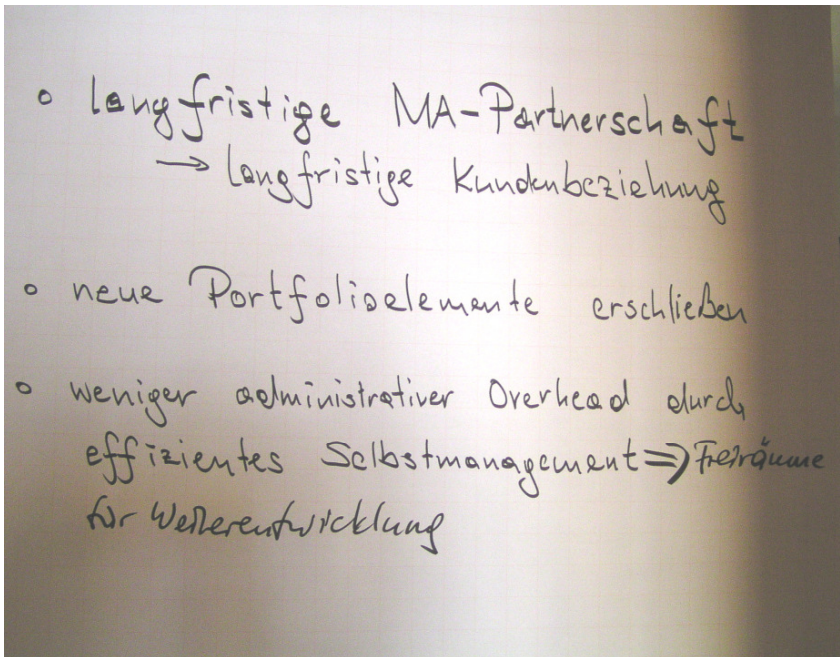 • langfristige MA-Partnerschaft
→ langfristige Kundenbeziehung
• neue Portfolioelemente erschließen
• weniger administrativer Overhead durch
effizientes Selbstmanagement ⇒ Freiräume
für Weiterentwicklung